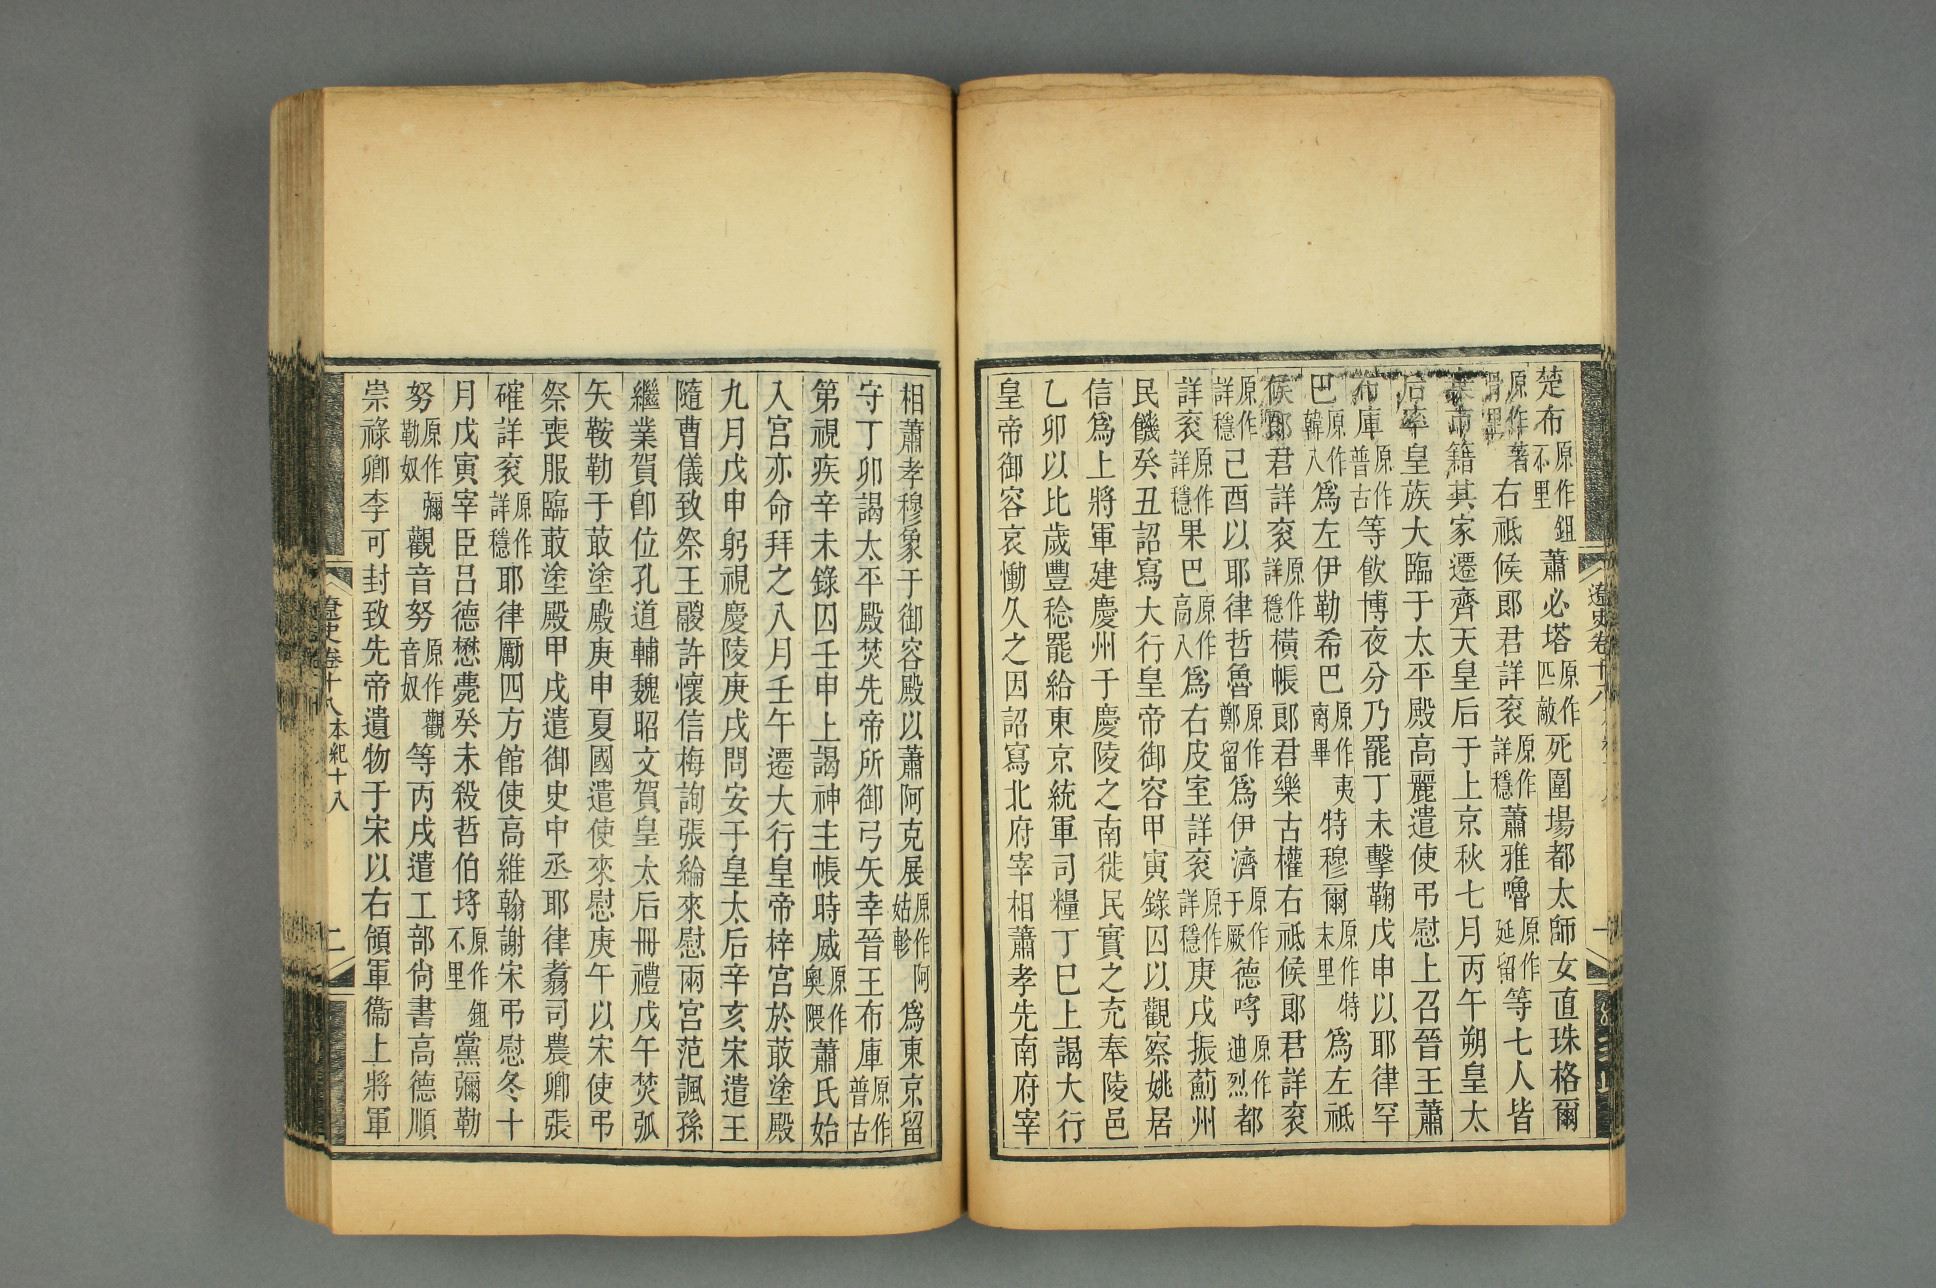 楚布原作鉏不里蕭必塔原作匹敵死圍場都太師女直珠格爾
原作著骨里右祗候郎君詳衮原作詳穩蕭雅嚕原作延留等七人皆
棄市籍其家遷齊天皇后于上京秋七月丙午朔皇太
后率皇族大臨于太平殿高麗遣使弔慰上召晉王蕭
布庫原作普古等飮博夜分乃罷丁未擊鞠戊申以耶律罕
巴原作韓八爲左伊勒希巴原作夷离畢特穆爾原作特末里爲左祗
候郎君詳衮原作詳穩橫帳郎君樂古權右祗候郎君詳衮
原作詳穩己酉以耶律哲魯原作鄭留爲伊濟原作于厥德哷原作迪烈都
詳衮原作詳穩果巴原作高八爲右皮室詳衮原作詳穩庚戌振薊州
民饑癸丑詔寫大行皇帝御容甲寅錄囚以觀察姚居
信爲上將軍建慶州于慶陵之南徙民實之充奉陵邑
乙卯以比歲豐稔罷給東京統軍司糧丁巳上謁大行
皇帝御容哀慟久之因詔寫北府宰相蕭孝先南府宰
遼史卷十八
相蕭孝穆象于御容殿以蕭阿克展原作阿姑軫爲東京留
守丁卯謁太平殿焚先帝所御弓矢幸晉王布庫原作普古
第視疾辛未錄囚壬申上謁神主帳時威原作奧隈蕭氏始
入宮亦命拜之八月壬午遷大行皇帝梓宮於菆塗殿
九月戊申躬視慶陵庚戌問安于皇太后辛亥宋遣王
隨曹儀致祭王鬷許懷信梅詢張綸來慰兩宮范諷孫
繼業賀卽位孔道輔魏昭文賀皇太后冊禮戊午焚弧
矢鞍勒于菆塗殿庚申夏國遣使來慰庚午以宋使弔
祭喪服臨菆塗殿甲戌遣御史中丞耶律翥司農卿張
確詳衮原作詳穩耶律勵四方館使高維翰謝宋弔慰冬十
月戊寅宰臣呂德懋薨癸未殺哲伯埒原作鉏不里黨彌勒
努原作彌勒奴觀音努原作觀音奴等丙戌遣工部尙書高德順
崇祿卿李可封致先帝遺物于宋以右領軍衞上將軍
遼史卷十八 本紀十八 二